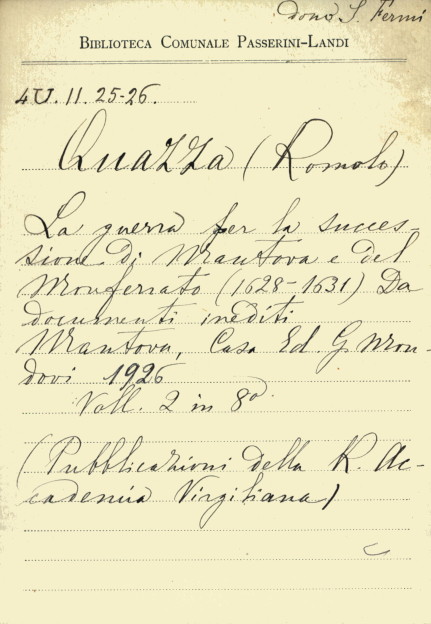 dono S. Fermi
BIBLIOTECA COMUNALE PASSERINI-LANDI
4U. 11. 25-26.
Quazza (Romolo)
La guerra per la succes-
sione di Mantova e del
Monferrato (1628-1631) Da
documenti inediti
Mantova, Casa Ed. G. Mon-
dovi 1926
Voll. 2 in 8°
(Pubblicazioni della R. Ac-
cademia Virgiliana)